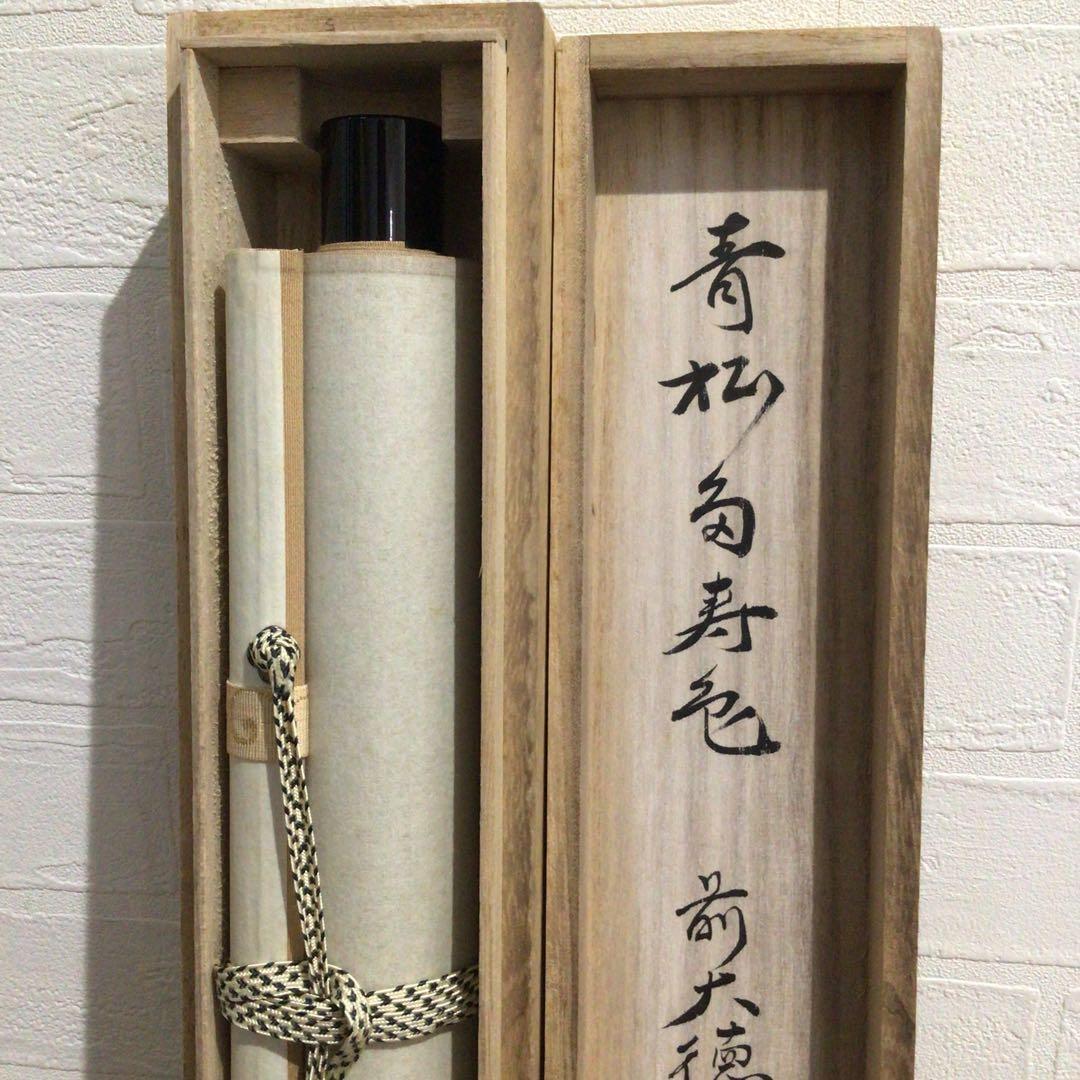 青松多寿色
前大德